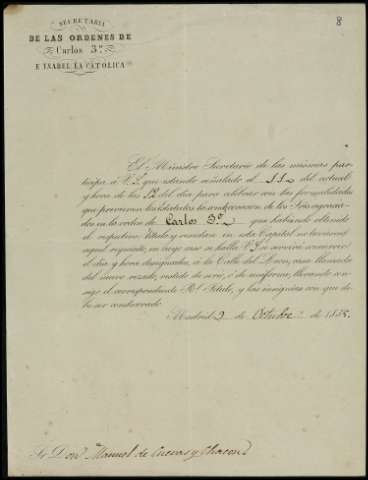 8
SECRETARIA
DE LAS ORDENES DE
Carlos 3.º
E YSABEL LA CATOLICA
El Ministro Secretario de las mismas par-
ticipa á V.S. que estando señalado el 11 del actual
y hora de las 12 del dia para celebrar con las formalidades
que previenen los Estatutos la condecoracion de los Sres agracia-
dos en la orden de Carlos 3º que habiendo obtenido
el respectivo Titulo, y residan en esta Capital no tuvieren
aquel requisito, en cuyo caso se halla V.S. se servirá concurrir
el dia y hora designados, á la Calle del
del nuevo rezado, vestido de serio, ó de uniforme, llevando con-
sigo el correspondiente Rl. Titulo, y las insignias con que de-
be ser condecorado.
Madrid 9 de Octubre de 1835.
Sr. Don Manuel de Cuevas y Chacon